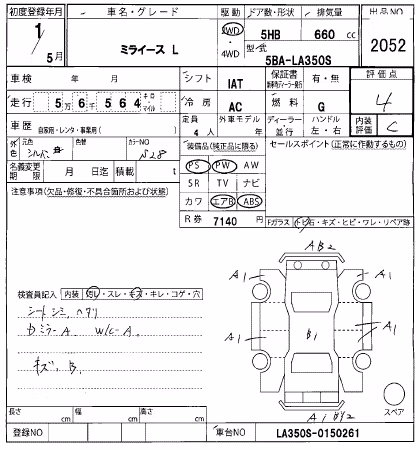 初度登録年月 車名・グレード 駆動 ドア数・形状 排気量 出品NO
1 / 5月 ミライース L 2WD ・ 4WD 5HB 660 cc 2052
型式 5BA-LA350S
車検 年 月 シフト IAT 保証書 有・無 評価点
走行 5万 6千 564 キロ・マイル 冷房 AC 燃料 G 4
車歴 自家用・レンタ・事業用( ) 定員 4人 外車モデル 年 ディーラー・並行 ハンドル 左・右 内装評価 C
外色 元色 シルバー 色替 カラーNO S28 装備品(純正品に限る) セールスポイント(正常に作動するもの)
名義変更期限 月 日迄 積載 t PS PW AW
注意事項(欠品・修復・不具合箇所および状態) SR TV ナビ
カワ エアB ABS
R券 7140 円 Fガラス トビ石・キズ・ヒビ・ワレ・リペア跡
AB2
A1 A1
検査員記入 内装 汚レ・スレ・キズ・キレ・コゲ・穴
シートシミ、ヘタリ
DミラーA W/C-A
キズ、B
A1 B1 A1
A1 A1
スペア
長さ cm 幅 cm 高さ cm
登録NO 車台NO LA350S-0150261